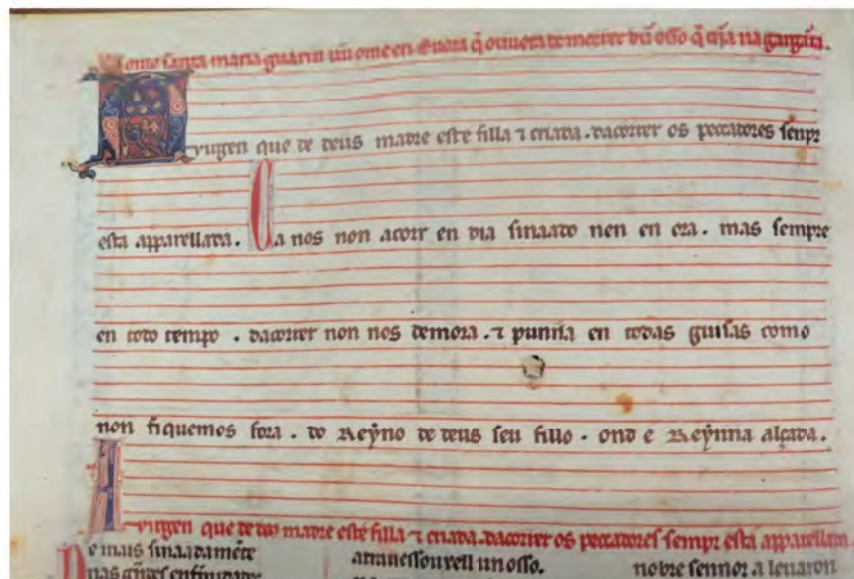 Como santa maria guariu un ome en Euora q̄ ouuera de morrer dũ osso q̄ trιa na garganta.
A uirgen que de deus madre este filla ⁊ criada. dacorrer os peccadores senpr
esta apparellada. Ca nos non acorr en dia sinaado nen en ora. mas sempre
en todo tempo. dacorrer non nos demora. ⁊ punna en todas guisas como
non fiquemos fora. do Reyno de deus seu fillo. ond e Reynna alçada.
A uirgen que de deus madre este filla ⁊ criada. dacorrer os peccadores sempr esta apparellada.
e mais sinaadamẽte
atrauessouxell un osso.
nobre sennor a leuaron